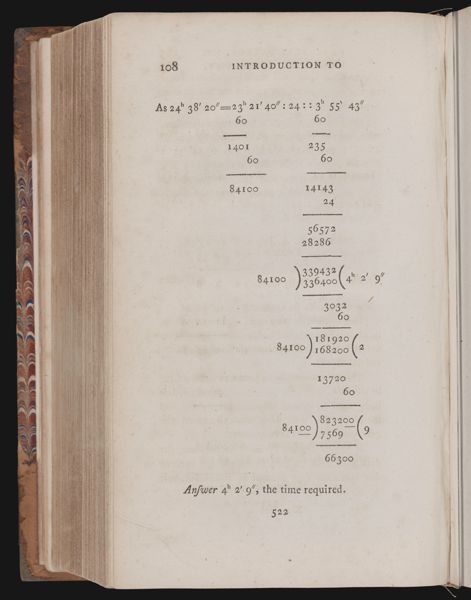 108 INTRODUCTION TO
As 24ʰ 38′ 20″=23ʰ 21′ 40″ : 24 : : 3ʰ 55′ 43″
60 60
1401 235
60 60
84100 14143
24
56572
28286
84100 ) 339432 ( 4ʰ 2′ 9″
336400
3032
60
84100 ) 181920 ( 2
168200
13720
60
84100 ) 823200 ( 9
7569
66300
Anſwer 4ʰ 2′ 9″, the time required.
522